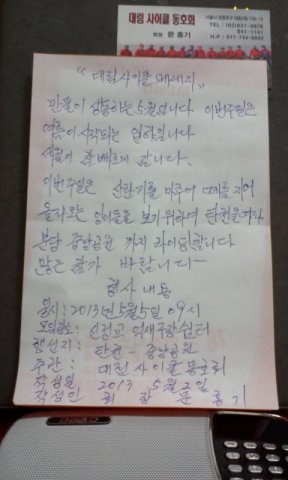 대림 사이클 동호회
회장 문홍기
"대림사이클 메세지"
만물이 생동하는 5월입니다 이번주일은
여름이 시작되는 입하입니다
세월이 참 빠르게 갑니다.
이번주일은 산란기를 마추어 떼를 지어
올라오는 잉어들을 보기 위하여 탄천을 따라
분당 중앙공원 까지 라이딩합니다
많은 참가 바랍니다 —
행사내용
일시: 2013년 5월 5일 09시
모임장소: 신정교 억새구장 쉼터
행선지: 탄천 - 중앙공원
주관: 대림 사이클 동호회
작성일 2013 5월 2일
작성인 회장 문홍기